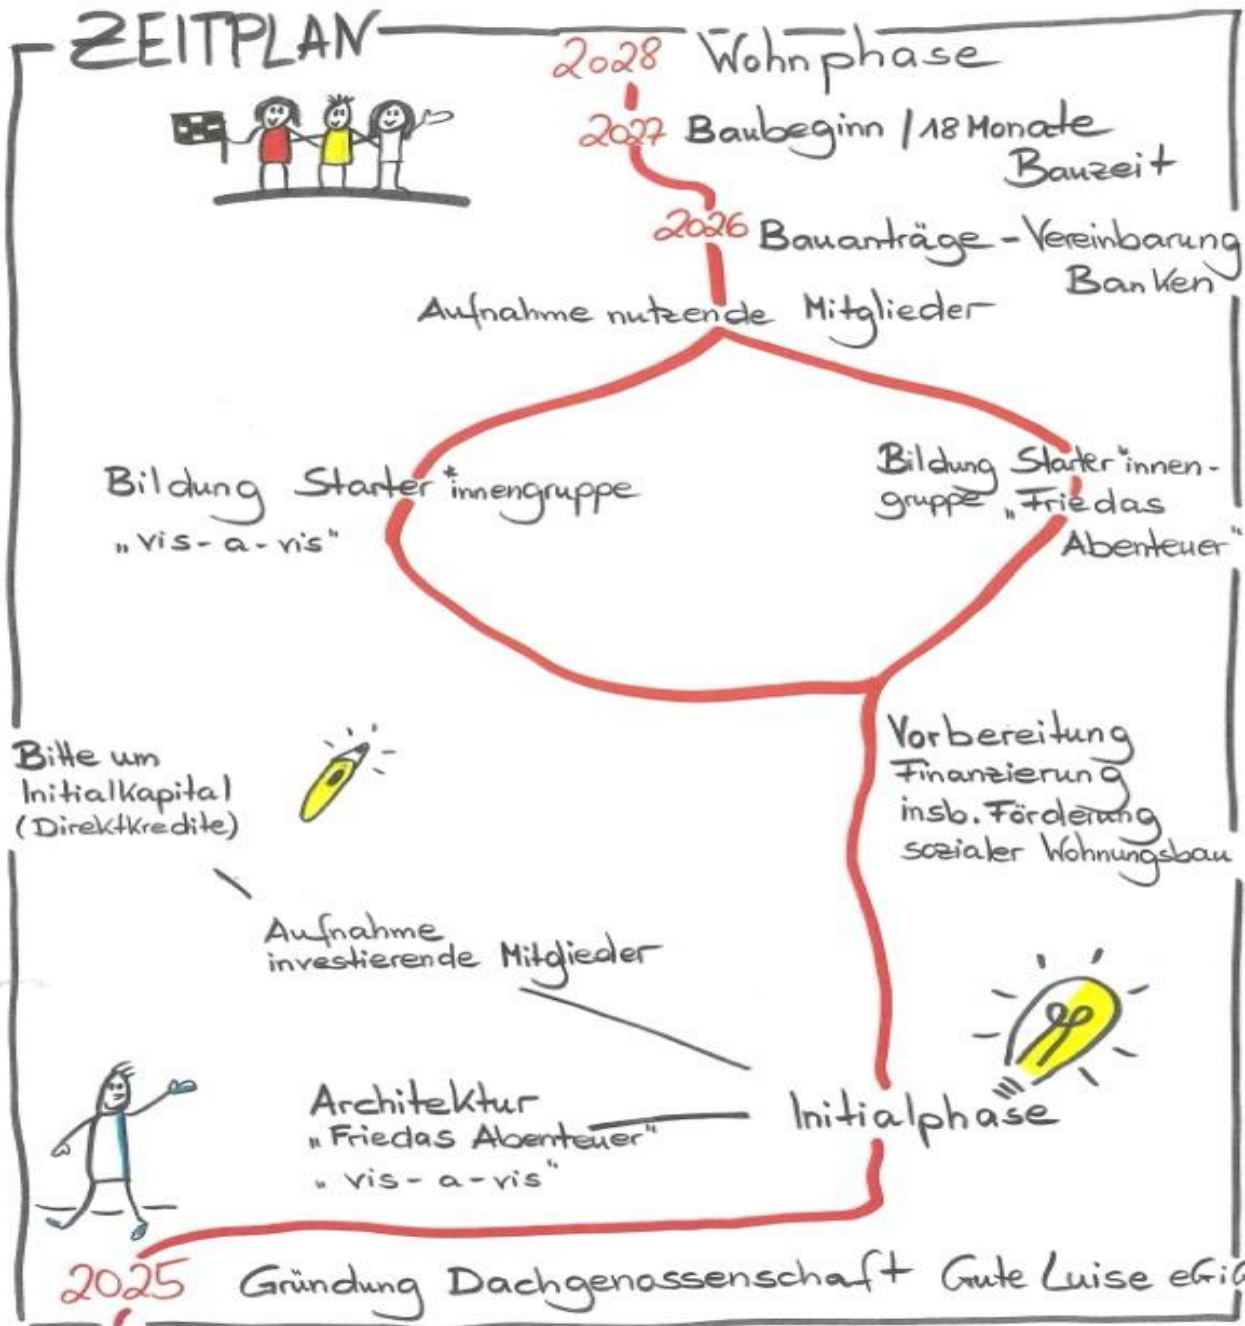 ZEITPLAN
2028 Wohnphase
2027 Baubeginn / 18 Monate
Bauzeit
2026 Bauanträge - Vereinbarung
Banken
Aufnahme nutzende Mitglieder
Bildung Starter*innengruppe
„vis-a-vis“
Bildung Starter*innen-
gruppe „Friedas
Abenteuer“
Vorbereitung
Finanzierung
insb. Förderung
sozialer Wohnungsbau
Bitte um
Initialkapital
(Direktkredite)
Aufnahme
investierende Mitglieder
Architektur
„Friedas Abenteuer“
„vis-a-vis“
Initialphase
2025 Gründung Dachgenossenschaft Gute Luise eGiG